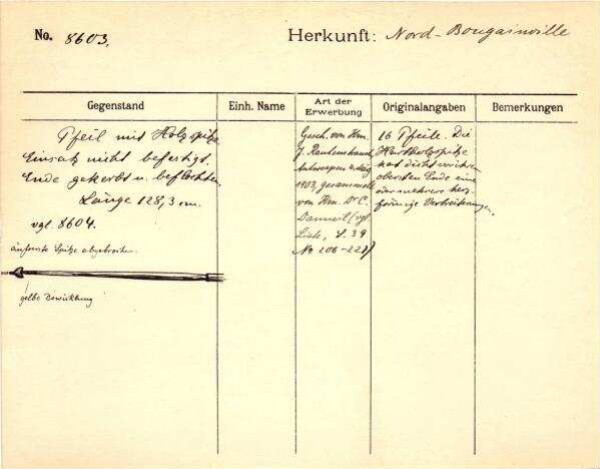 No. 8603.
Herkunft: Nord-Bougainville
Gegenstand
Einh. Name
Art der Erwerbung
Originalangaben
Bemerkungen
Pfeil mit Holzspitze
Einsatz nicht befestigt.
Ende gekerbt u. beflochten.
Länge 128,3 cm.
vgl. 8604.
äußerste Spitze abgebrochen.
gelbe Bewicklung
Gesch. von Hrn.
J. Rautenstrauch
Antwerpen
1903, gesammelt
von Hrn. Dr C.
Dannert (vgl.
Liste, S. 39
No 206-221)
16 Pfeile. Die
Hartholzspitze
hat dicht
oberen Ende eine
oder mehrere herz-
förmige Verdickungen.